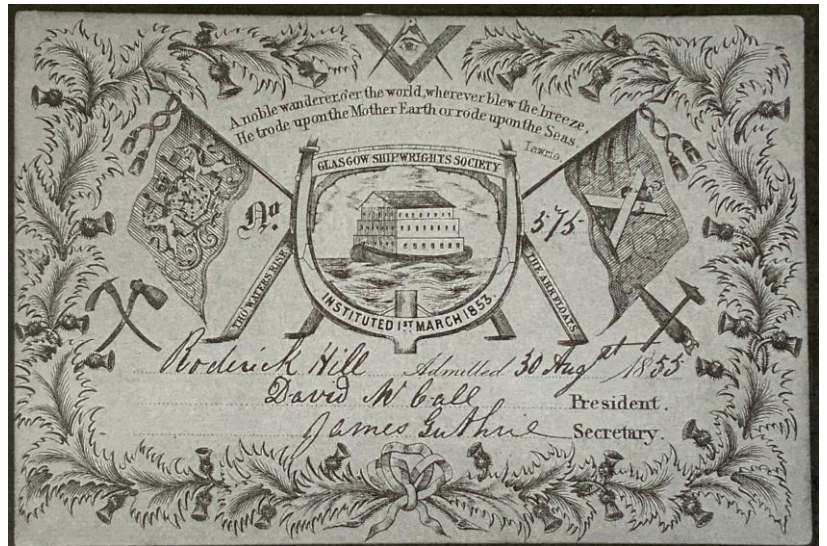 A noble wanderer, o'er the world, wherever blew the breeze,
He trode upon the Mother Earth or rode upon the Seas.
Lawrie.
GLASGOW SHIPWRIGHTS SOCIETY
No. 575
THO' WATERS RISE
THE ARK FLOATS
INSTITUTED 1ST MARCH 1853.
Roderick Hill Admitted 30 Augst 1855
David McCall President.
James Guthrie Secretary.